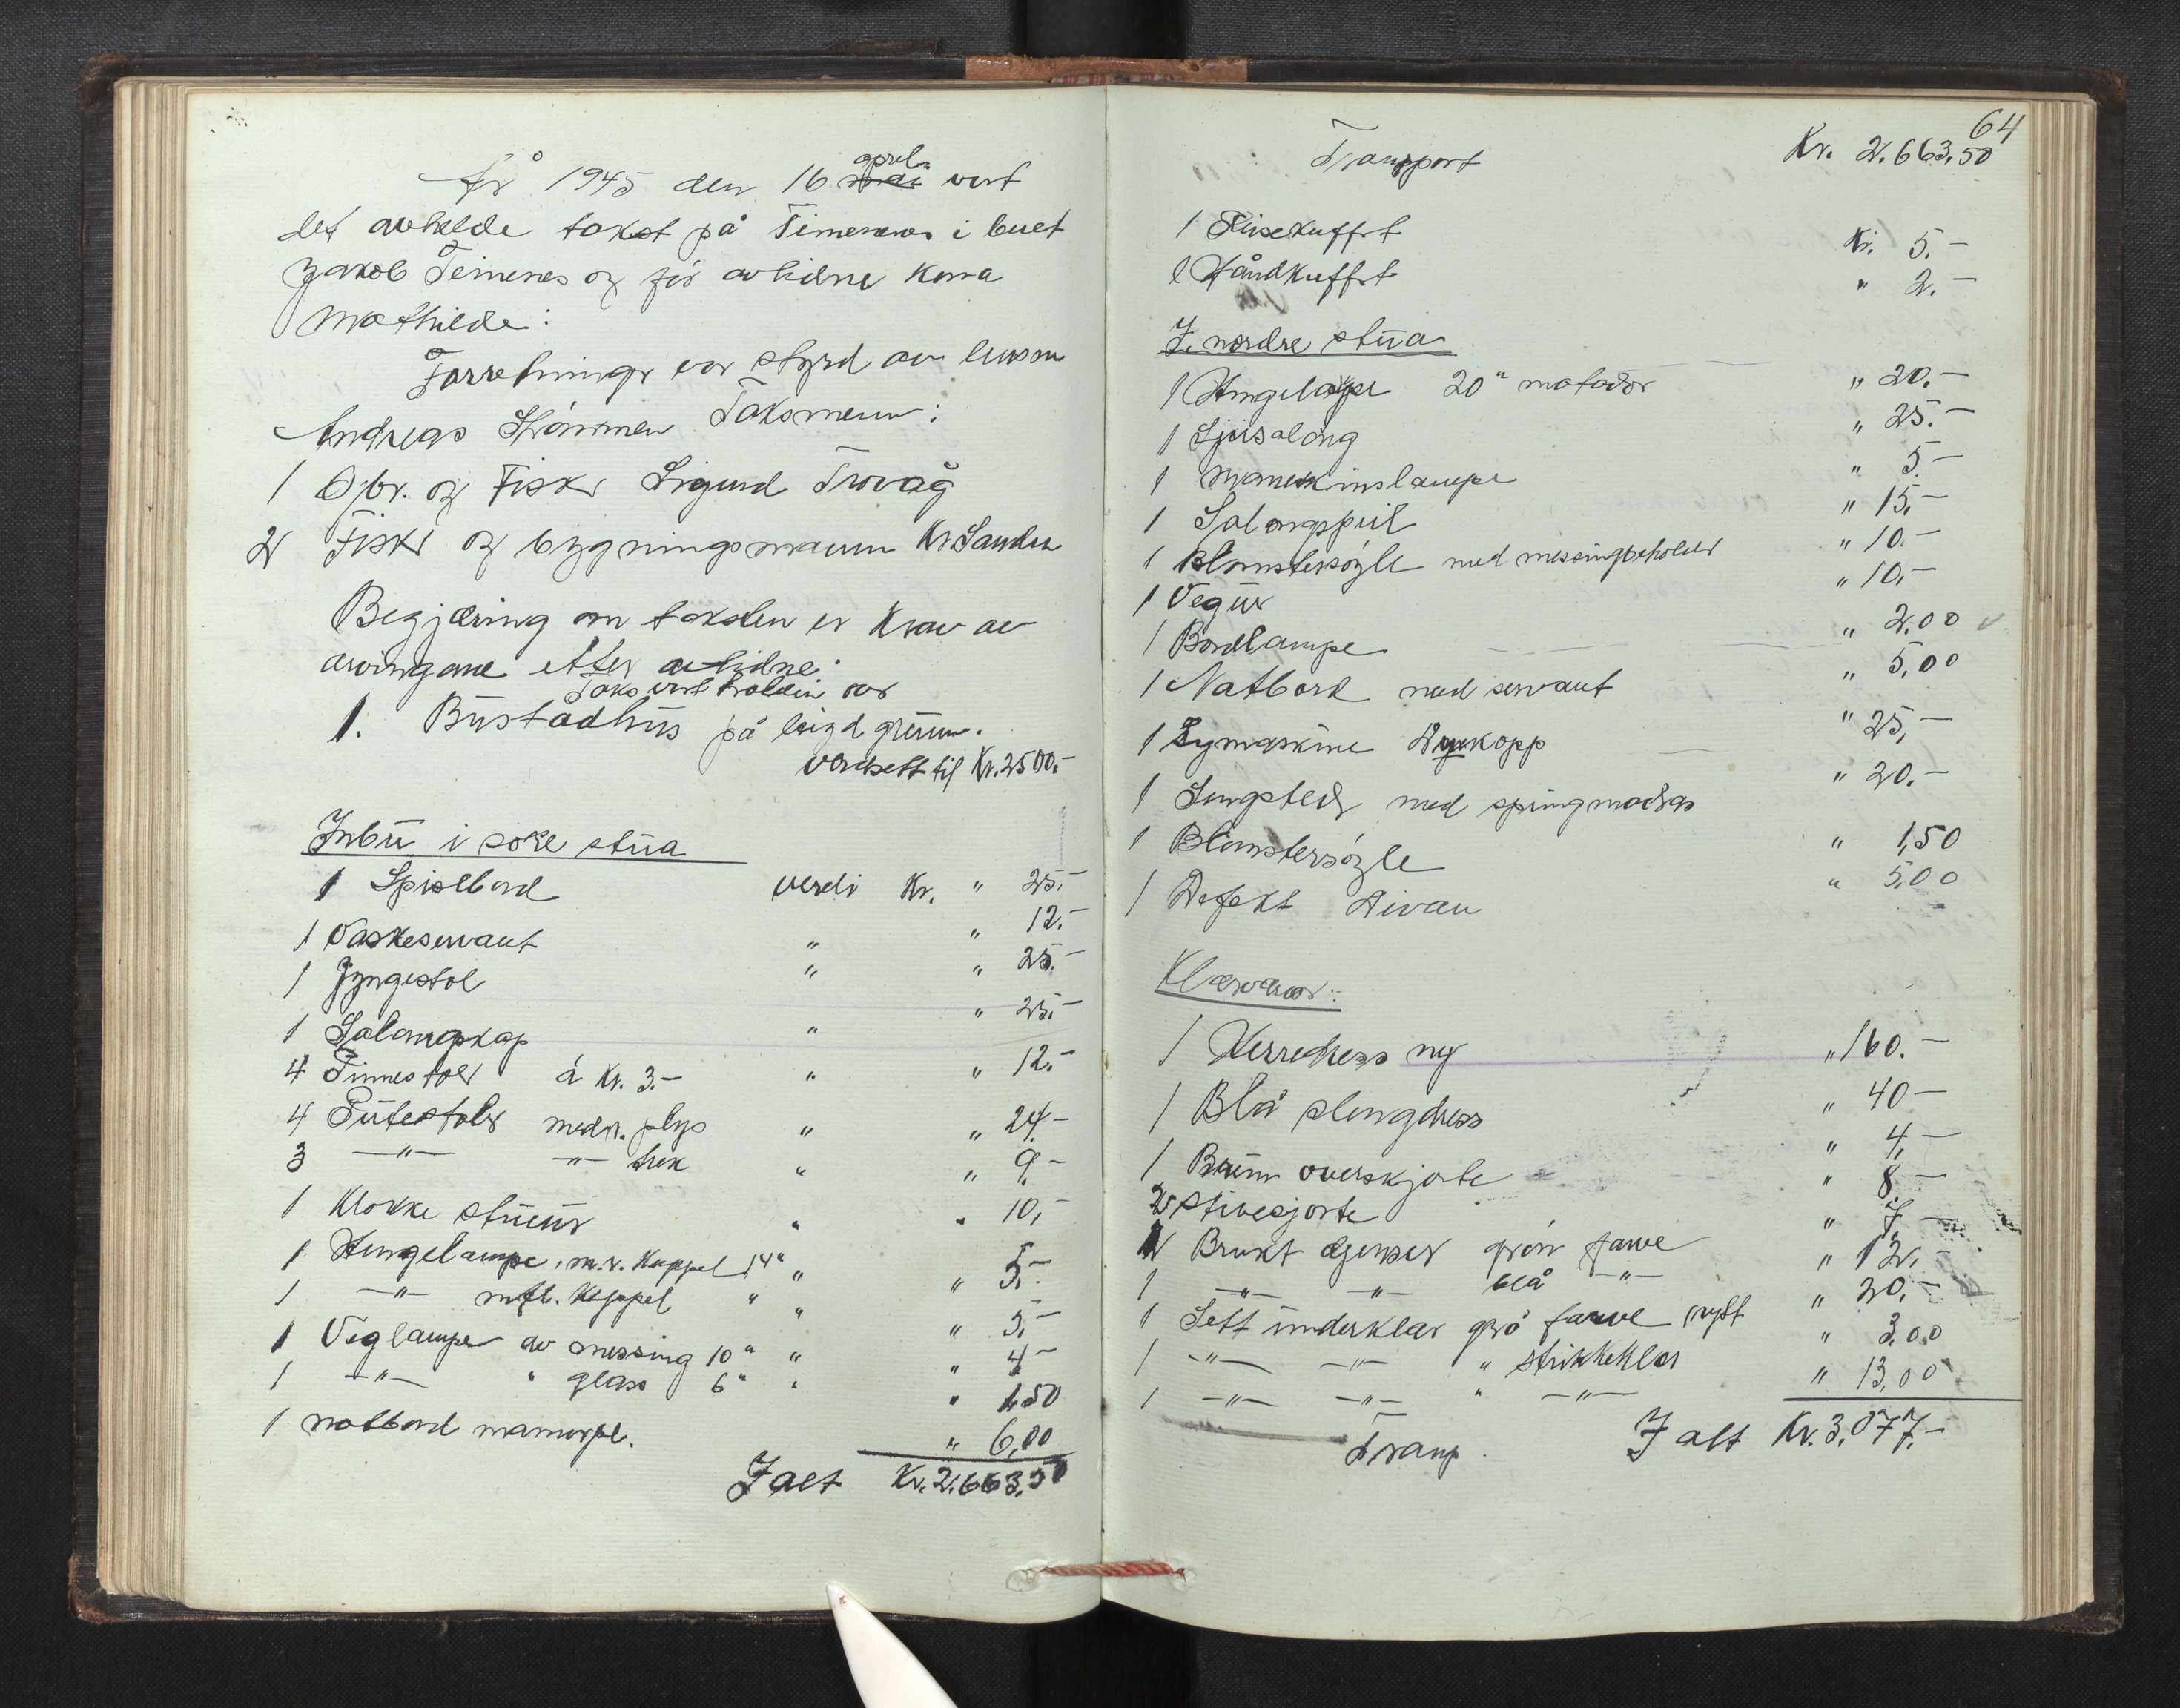 År 1945 den 16 april vert
det avhelde takst på Teimenes i buet
Jakob Teimenes og før avlidne kona
Mathilde:
Forretninge var styrd av lensm
Andreas Strømmen Taksmenn:
1 Gbr. og Fisker Sigurd Trovåg
2 Fisker og bygningsmann Kr Sanden
Begjæring om taksten er krav av
arvingane etter avlidne.
Takst vert halden over
1. Bustadhus på leigd grunn.
verdsett til Kr. 2500.-
Inbu i søre stua
1 Spisebord verdi Kr. " 25.-
1 Vaskeservant " " 12.-
1 Gyngestol " " 25.-
1 Salongskap " " 25.-
4 Pinnestoler á Kr. 3.- " " 12.-
4 Putestoler medr. plys " " 24.-
3 -"- -"- trek " " 9.-
1 Klokke stueur " " 10,-
1 Hengelampe, m.r. Kuppel 14" " " 5,-
1 -"- m fl. Kuppel " " " 5,-
1 Veglampe av messing 10" " " 4-
1 -"- " glass 6" " " 1,50
1 natbord marmorpl. " 6,00
I alt Kr. 2.663,50
64
Transport Kr. 2.663,50
1 Reisekuffert Kr. 5.-
1 Håndkuffert " 2.-
I. nordre stua
1 Hengelampe 20" matador " 20.-
1 Sjiselong " 25.-
1 Maneskinslampe " 5-
1 Salongspeil " 15,-
1 Blomstersøyle med messingbeholder " 10.-
1 Vegur " 10,-
1 Bordlampe " 2,00
1 Natbord med servant " 5,00
1 Symaskine Dyrkopp " 25,-
1 Sengsted med springmadras " 20.-
1 Blomstersøyle " 1,50
1 Defekt Divan " 5,00
Klædevarer:
1 Herredress ny " 160.-
1 Blå slengdress " 40-
1 Brun overskjorte " 4,-
2 Stivesjorte " 8-
1 Brukt djenser grøn farve " 7,-
1 -"- -"- blå -"- " 12.-
1 Sett underklær grå farve nytt " 20,-
1 -"- -"- " strikkeklær " 3,00
1 -"- -"- " -"- " 13,00
Transp. I alt Kr. 3.077,-